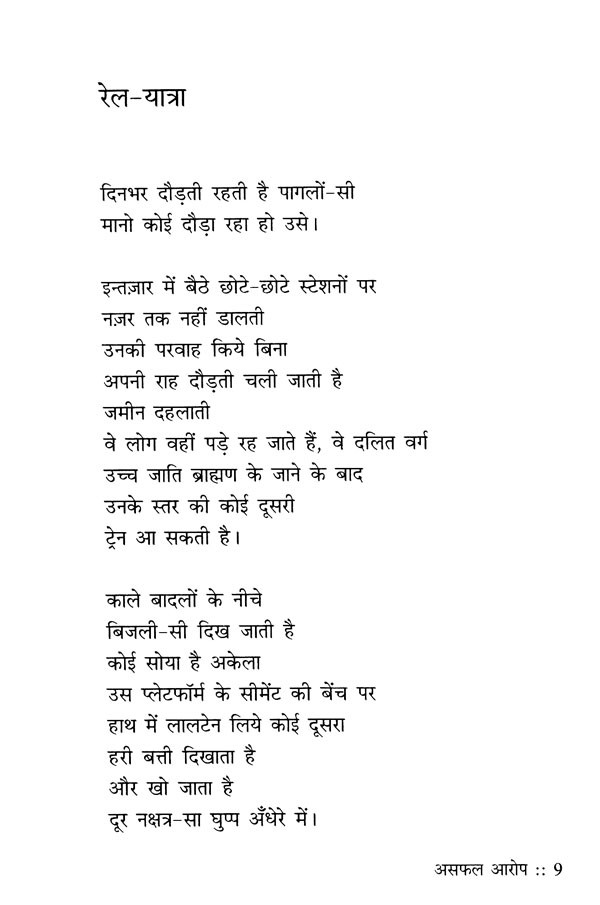 रेल-यात्रा
दिनभर दौड़ती रहती है पागलों-सी
मानो कोई दौड़ा रहा हो उसे।
इन्तज़ार में बैठे छोटे-छोटे स्टेशनों पर
नज़र तक नहीं डालती
उनकी परवाह किये बिना
अपनी राह दौड़ती चली जाती है
जमीन दहलाती
वे लोग वहीं पड़े रह जाते हैं, वे दलित वर्ग
उच्च जाति ब्राह्मण के जाने के बाद
उनके स्तर की कोई दूसरी
ट्रेन आ सकती है।
काले बादलों के नीचे
बिजली-सी दिख जाती है
कोई सोया है अकेला
उस प्लेटफॉर्म के सीमेंट की बेंच पर
हाथ में लालटेन लिये कोई दूसरा
हरी बत्ती दिखाता है
और खो जाता है
दूर नक्षत्र-सा घुप्प अँधेरे में।
असफल आरोप :: 9